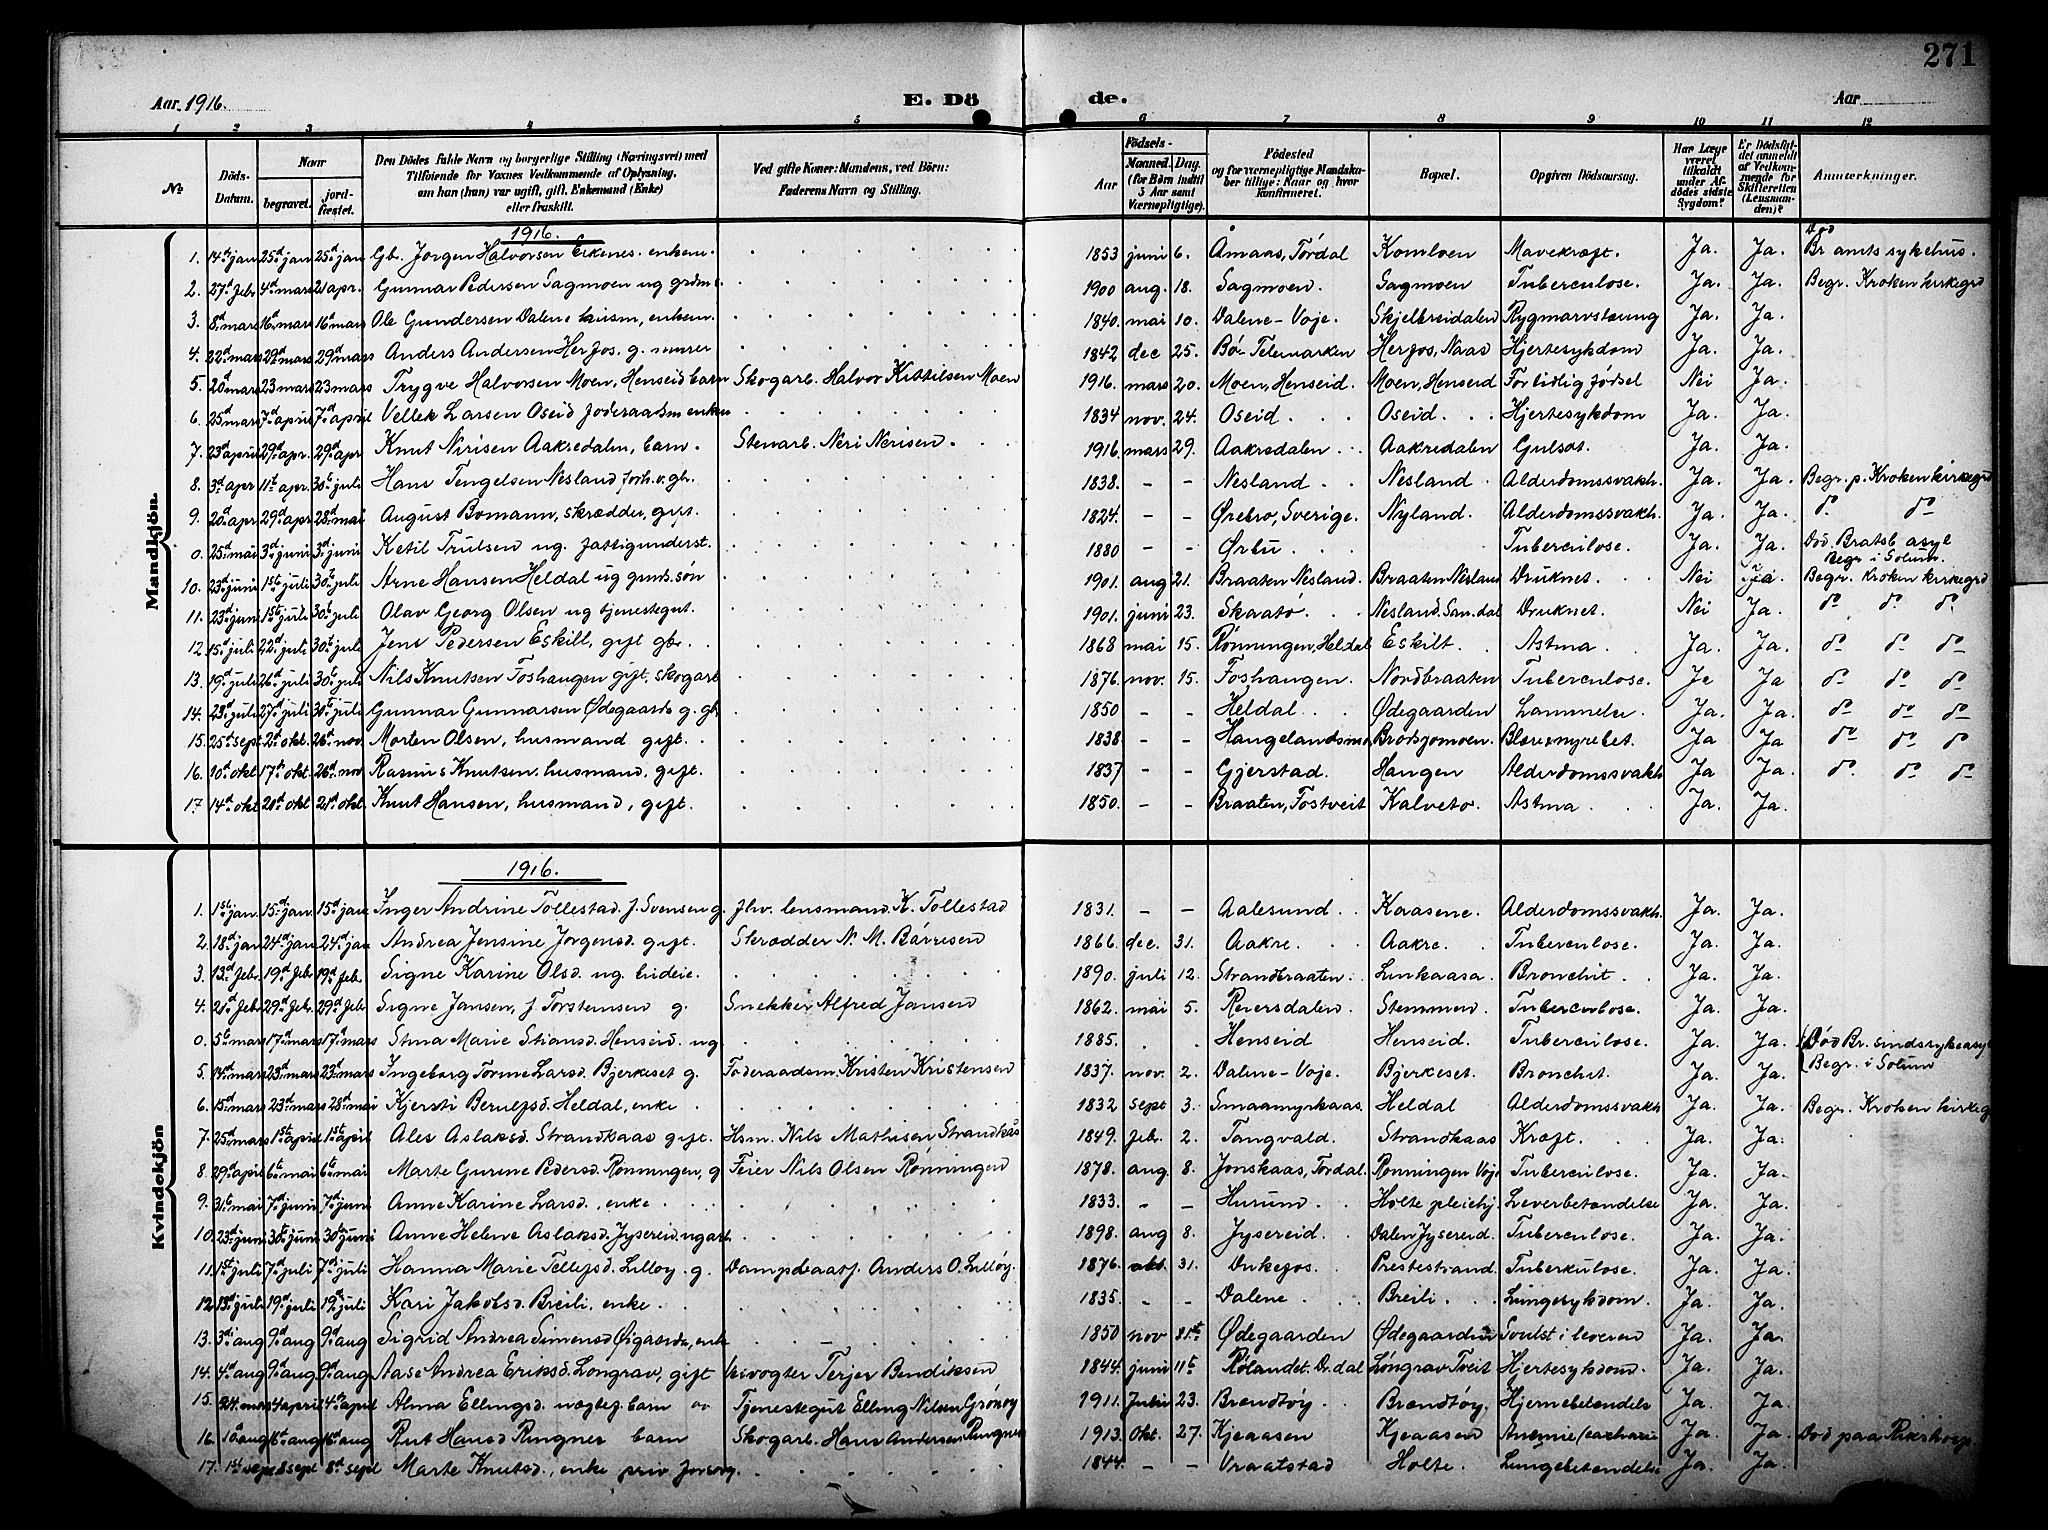 271
Aar 1916.
E. Dö de.
Aar
1 2 3 4 5 6 7 8 9 10 11 12
№ Döds-Datum. Naar begravet. jordfæstet. Den Dödes fulde Navn og borgerlige Stilling (Næringsvei) med Tilföiende for Voxnes Vedkommende af Oplysning, om han (hun) var ugift, gift, Enkemand (Enke) eller fraskilt. Ved gifte Koner: Mandens, ved Börn: Faderens Navn og Stilling. Födsels- Aar Maaned. Dag. (for Börn indtil 5 Aar samt Værnepligtige). Födested og for værnepligtige Mandskaber tillige: Naar og hvor konfirmeret. Bopæl. Opgiven Dödsaarsag. Har Læge været tilkaldt under Afdödes sidste Sygdom? Er Dödsfaldet anmeldt af Vedkommende for Skifteretten (Lensmanden)? Anmerkninger.
Mandkjön.
1916.
1. 14de jan 25de jan 25de jan Gb. Jørgen Halvorsen Eikenes. enkem. 1853 juni 6. Åmaas, Tørdal Komloen Mavekræft. Ja. Ja. Død Br amts sykehus.
2. 27de febr 4de mars 21 apr. Gunnar Pedersen Sagmoen ug grdms. 1900 aug. 18. Sagmoen. Sagmoen Tuberculose. Ja. Ja. Begr. Kroken kirkegrd
3. 8de mars 16de mars 16de mars Ole Gundersen Dalene husm, enkem. 1840. mai 10. Dalene-Voje. Skjelbreidalen Rygmarvstæring Ja. Ja.
4. 22de mars 29de mars 29de mars Anders Andersen Herfos. g. murer 1842 dec 25. Bø-Telemarken Herfos, Naas Hjertesykdom Ja. Ja.
5. 20de mars 23 mars 23 mars Trygve Halvorsen Moen, Henseid barn Skogarb. Halvor Kittilsen Moen 1916. mars 20. Moen, Henseid. Moen, Henseid For tidlig fødsel Nei Ja.
6. 25de mars 7de april 7de april Vellek Larsen Oseid foderaadsm enkem 1834 nov. 24. Oseid. Oseid. Hjertesykdom Ja. Ja.
7. 23de april 29de apr. 29de apr Knut Nirisen Aakredalen, barn. Stenarb. Neri Nerisen. 1916. mars 29. Aakredalen Aakredalen Gulsot. Ja. Ja.
8. 3de apr 11te apr. 30te juli Hans Tengelsen Nesland forh.v. gb. 1838. - - Nesland Nesland. Alderdomssvakh. Ja. Ja. Begr. p. Kroken kirkegrd
9. 20de apr 29de apr 28de mai August Bomann, skrædder, gift. 1824. - - Ørebro, Sverige. Nyland. Alderdomssvakh. Ja. Ja. do do
0. 25de mai 3de juni 3de juni Ketil Trulsen ug. fattigunderst. 1880 - - Ørbu. Tuberculose. Ja. Ja. Død. Bratsb. asyl Begr i Solum.
10. 23de juni 1ste juli 30te juli Arne Hansen Heldal ug grub. søn 1901. aug 21. Braaten Nesland. Braaten Nesland Druknet. Nei Ja Begr. Kroken kirkegrd
11. 23de juni 1ste juli 30te juli Olav Georg Olsen ug tjenestegut. 1901. juni 23. Skaatø Nesland. San.dal Druknet. Nei Ja. do do do
12. 15de juli 22de juli 30te juli Jens Pedersen Eskilt, gift gbr. 1868 mai 15. Rønningen, Heldal Eskilt. Astma Ja. Ja. do do do
13. 19de juli 26de juli 30te juli Nils Knutsen Foshaugen gift, skogarb 1876. nov. 15. Foshaugen. Nordbraaten Tuberculose. Ja Ja do do do
14. 23de juli 27de juli 30te juli Gunnar Gunnarsen Ødegaarde g. gb. 1850 - - Heldal. Ødegaarden Lammelse. Ja. Ja. do do do
15. 25de sept 2de okt. 26de nov. Morten Olsen, husmand gift. 1838. - - Haugelandsmo. Brødsjømoen. Ja Ja. do do do
16. 10de okt 17de okt. 26de nov Rasmus Knutsen. husmand, gift. 1837 - - Gjerstad. Haugen Alderdomssvakh Ja Ja. do do do
17. 14de okt 20de okt 21de okt. Knut Hansen, husmand, gift. 1850. - - Braaten, Tostveit Kalvetø. Astma Ja. Ja.
Kvindekjön
1916.
1. 1ste jan. 15de jan 15de jan Inger Andrine Tollestad. f. Svensen g. fhv. lensmand. K. Tollestad 1831. - - Aalesund. Kaasene. Alderdomssvakh. Ja. Ja.
2. 18de jan 24de jan 24de jan Andrea Jensine Jørgensd. gift. Skrædder N. M. Børresen 1866. dec. 31. Aakre. Aakre. Tuberculose. Ja. Ja.
3. 13de febr. 19de febr 19de febr. Signe Karine Olsd. ug. budeie. 1890. juli 12. Strandbraaten. Linkaasa. Bronchit. Ja. Ja.
4. 21de febr 29de febr. 29de febr Signe Jansen, f Torstensen g. Snekker Alfred Jansen 1862. mai 5. Reiersdalen. Stemmen. Tuberculose. Ja. Ja.
0. 5te mars 17de mars 17de mars Stina Marie Stiansd. Henseid. ug 1885. Henseid Henseid. Tuberculose. Ja. Ja. Død Br. sindssykeasyl Begr. i Solum
5. 14de mars 23de mars 23de mars Ingeborg Tomine Larsd. Bjerkeset g. Føderaadsm. Kristen Kristensen 1837. nov. 2. Dalene-Voje. Bjerkeset. Bronchit. Ja. Ja.
6. 15de mars 23de mars 28de mai Kjersti Berulfsd. Heldal, enke 1832 sept 3. Smaamyrkaas. Heldal Alderdomssvakh Ja. Ja. Begr. Kroken kirkeg
7. 25de mars 1ste april 1ste april Ales Aslaksd. Strandkaas gift. Hsm. Nils Mathisen Strandkås 1849. febr. 2. Tangvald. Strandkaas Kræft. Ja. Ja.
8. 29de april 6te mai 6te mai Marte Gurine Pedersd. Rønningen, g Feier Nils Olsen Rønningen 1878. aug. 8. Jonskaas, Tørdal. Rønningen Voje Tuberculose. Ja. Ja.
9. 31te mai 7de juni 7de juni Anne Karine Larsd., enke 1833. - - Hurum Holte pleiehj. Leverbetændelse Ja. Ja.
10. 23de juni 30te juni 30te juni Anne Helene Aslaksd. Jysereid. ug arb. 1898. aug 8. Jysereid. Dalen Jysereid. Tuberculose. Ja. Ja.
11. 1ste juli 7de juli 7de juli Hanna Marie Tellefsd. Lilløy. g. Anders O. Lilløy. 1876. okt. 31. Dukefos. Prestestrand. Tuberkulose. Ja. Ja.
12 13de juli 19de juli 19de juli Kari Jakobsd. Breili, enke 1835. - - Dalene Breili. Lungesykdom. Ja. Ja.
13. 3de aug 9de aug 9de aug Sigrid Andrea Simonsd Øigaarde, enke 1850 nov 31te Ødegaarden Ødegaarden Svulst i leveren Ja. Ja.
14. 4de aug 9de aug 9de aug Aase Andrea Eriksd. Longrav, gift Terjer Bendiksen 1844. juni 11te Rølandet. Dr.dal Longrav Tveit Hjertesykdom. Ja. Ja.
15. 24. mars 4 april 4de april Alma Ellingsd. uægtef. barn av Tjenestegut Elling Nilsen Grønøy 1911. Julii 23. Brandtøy Brandtøy. Hjernebetændels Ja. Ja.
16. 10 aug 16te aug 16de aug Rut Hansd Ringner barn Skogarb. Hans Andersen Ringner 1913. Okt. 27. Kjeaasen Kjeaasen Anemie Ja. Ja. Død paa Rikshosp.
17. 1ste sept 8 sept 8de sept Marte Knutsd., enke priv forsørg. 1844. - - Vraatstad Holte. Lungebetændelse Ja. Ja.